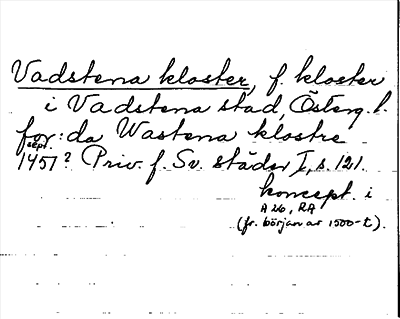 Vadstena kloster, f. kloster
i Vadstena stad, Österg. l.
for: da Wastena klostre
sept.
1451? Priv. f. Sv. städer I, s. 121.
koncept i
A 26, RA
(fr. början av 1500-t).